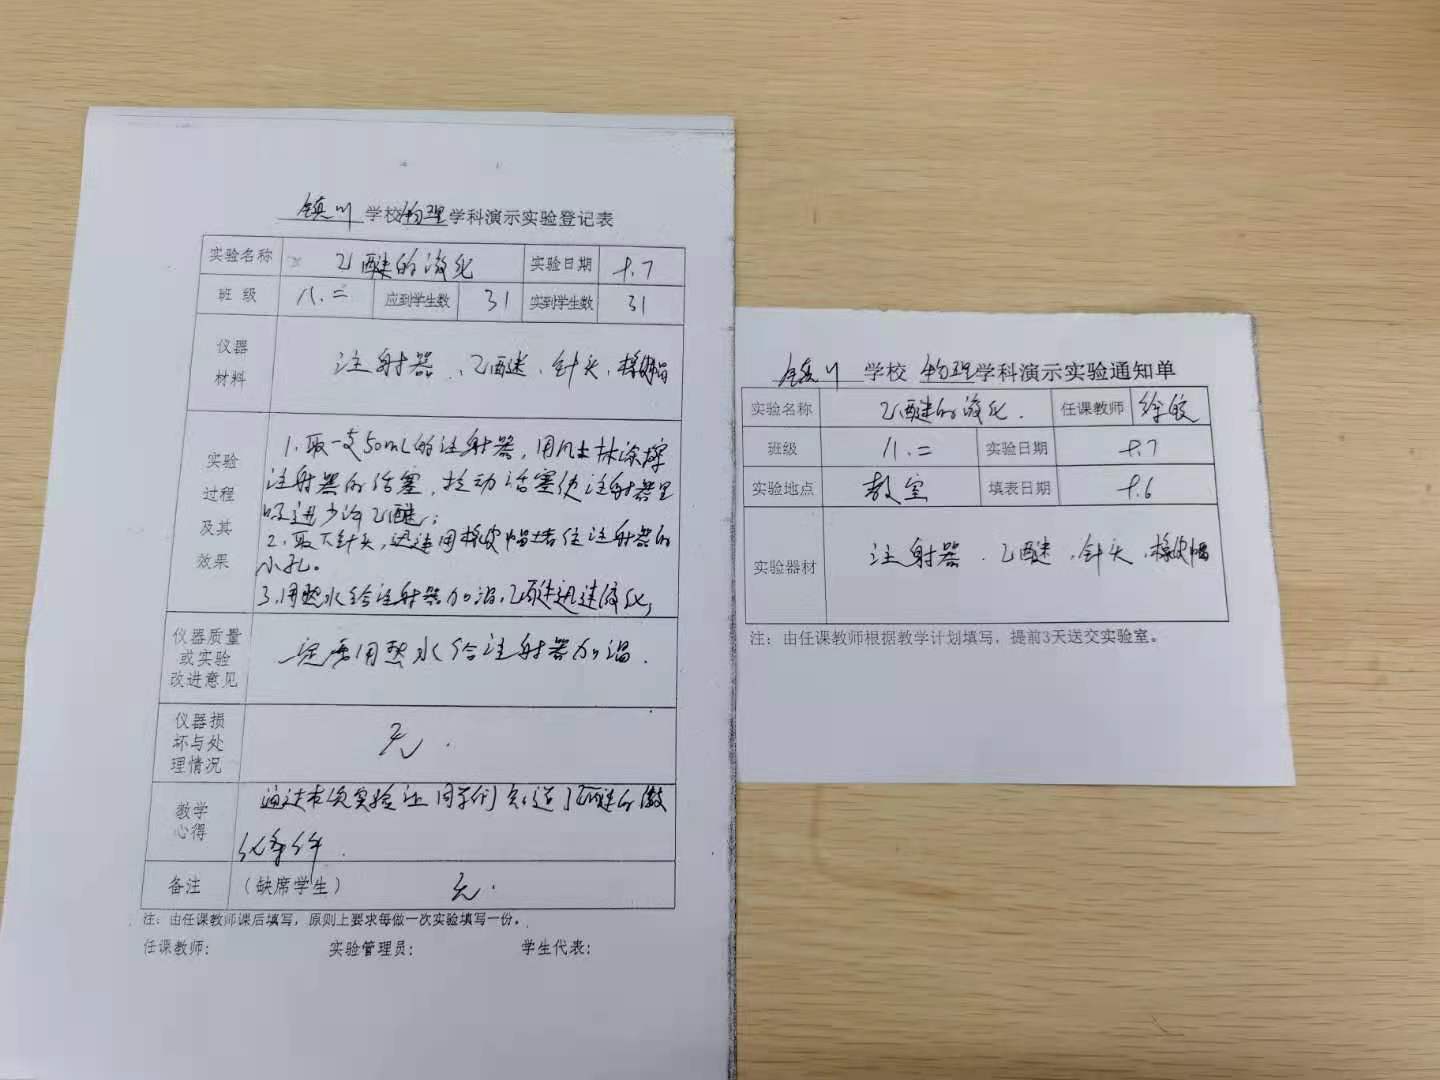 镇川 学校 物理 学科演示实验登记表
实验名称 乙醚的液化 实验日期 9.7
班 级 八.二 应到学生数 31 实到学生数 31
仪器
材料
注射器、乙醚、针头、橡皮帽
实验
过程
及其
效果
1.取一支50mL的注射器，用凡士林涂擦
注射器的活塞，拉动活塞使注射器里
吸进少许乙醚；
2.取下针头，迅速用橡皮帽堵住注射器的
小孔。
3.用热水给注射器加温，乙醚迅速液化；
仪器质量
或实验
改进意见
一定要用热水给注射器加温．
仪器损
坏与处
理情况
无．
教学
心得
通过本次实验让同学们知道了乙醚的液
化条件．
备注 （缺席学生） 无．
注：由任课教师课后填写，原则上要求每做一次实验填写一份。
任课教师: 实验管理员: 学生代表:
镇川 学校 物理 学科演示实验通知单
实验名称 乙醚的液化． 任课教师
班级 八.二 实验日期 9.7
实验地点 教室 填表日期 9.6
实验器材 注射器、乙醚、针头、橡皮帽
注：由任课教师根据教学计划填写，提前3天送交实验室。